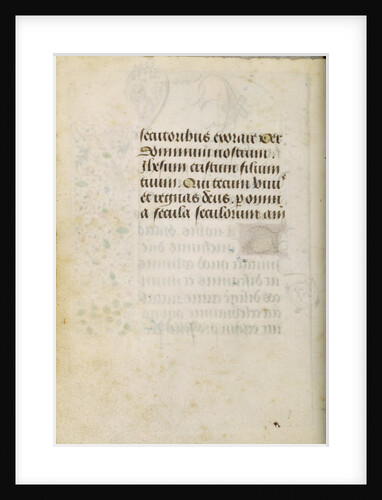 secutoribus exorare Per
Dominum nostrum.
Jhesum cristum filium
tuum. Qui tecum viuit
et regnas deus. p omni
a secula seculorum am